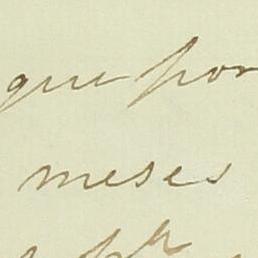 que por
meses